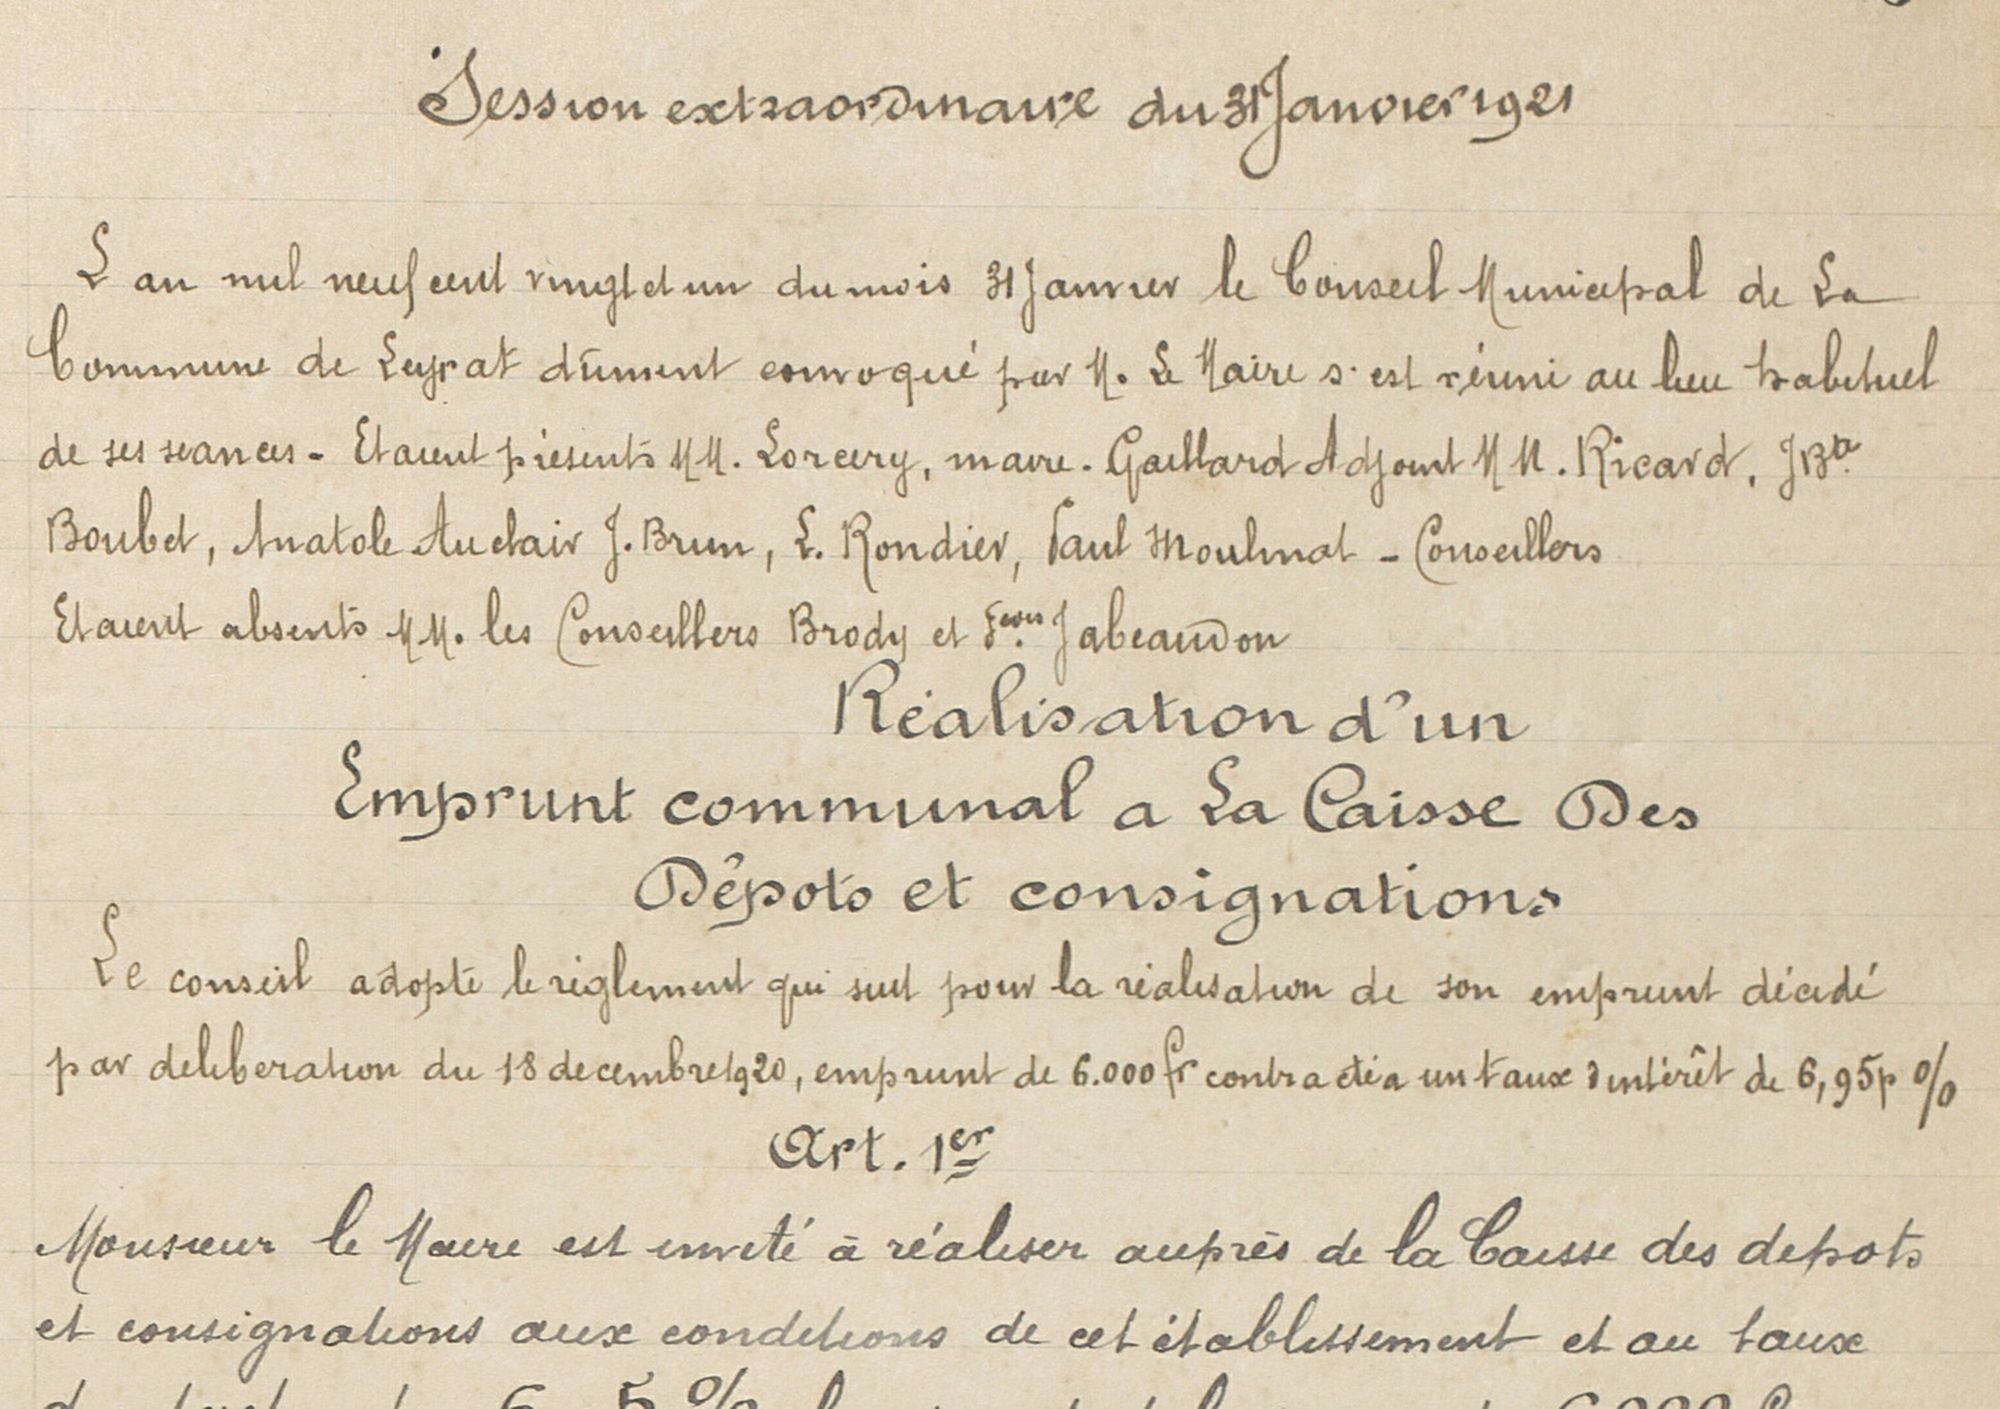 Session extraordinaire du 31 Janvier 1921
L an mil neuf cent vingt et un du mois 31 Janvier le Conseil Municipal de La
Commune de Leyrat dûment convoqué par M. Le Maire s'est réuni au lieu habituel
de ses seances - Etaient présents MM. Lorcery, maire. Gaillard Adjoint MM. Ricard, JBte
Boubet, Anatole Auclair J. Brun, L. Rondier, Paul Moulinat - Conseillers
Etaient absents MM. les Conseillers Brody et Jabeaudon
Réalisation d'un
Emprunt communal a La Caisse Des
Dépots et consignations
Le conseil adopte le règlement qui suit pour la réalisation de son emprunt décidé
par deliberation du 18 decembre 1920, emprunt de 6.000 fr contracté a un taux d intérêt de 6,95 p %
Art. 1er
Monsieur le Maire est invité à réaliser auprès de la Caisse des depots
et consignations aux conditions de cet établissement et au taux